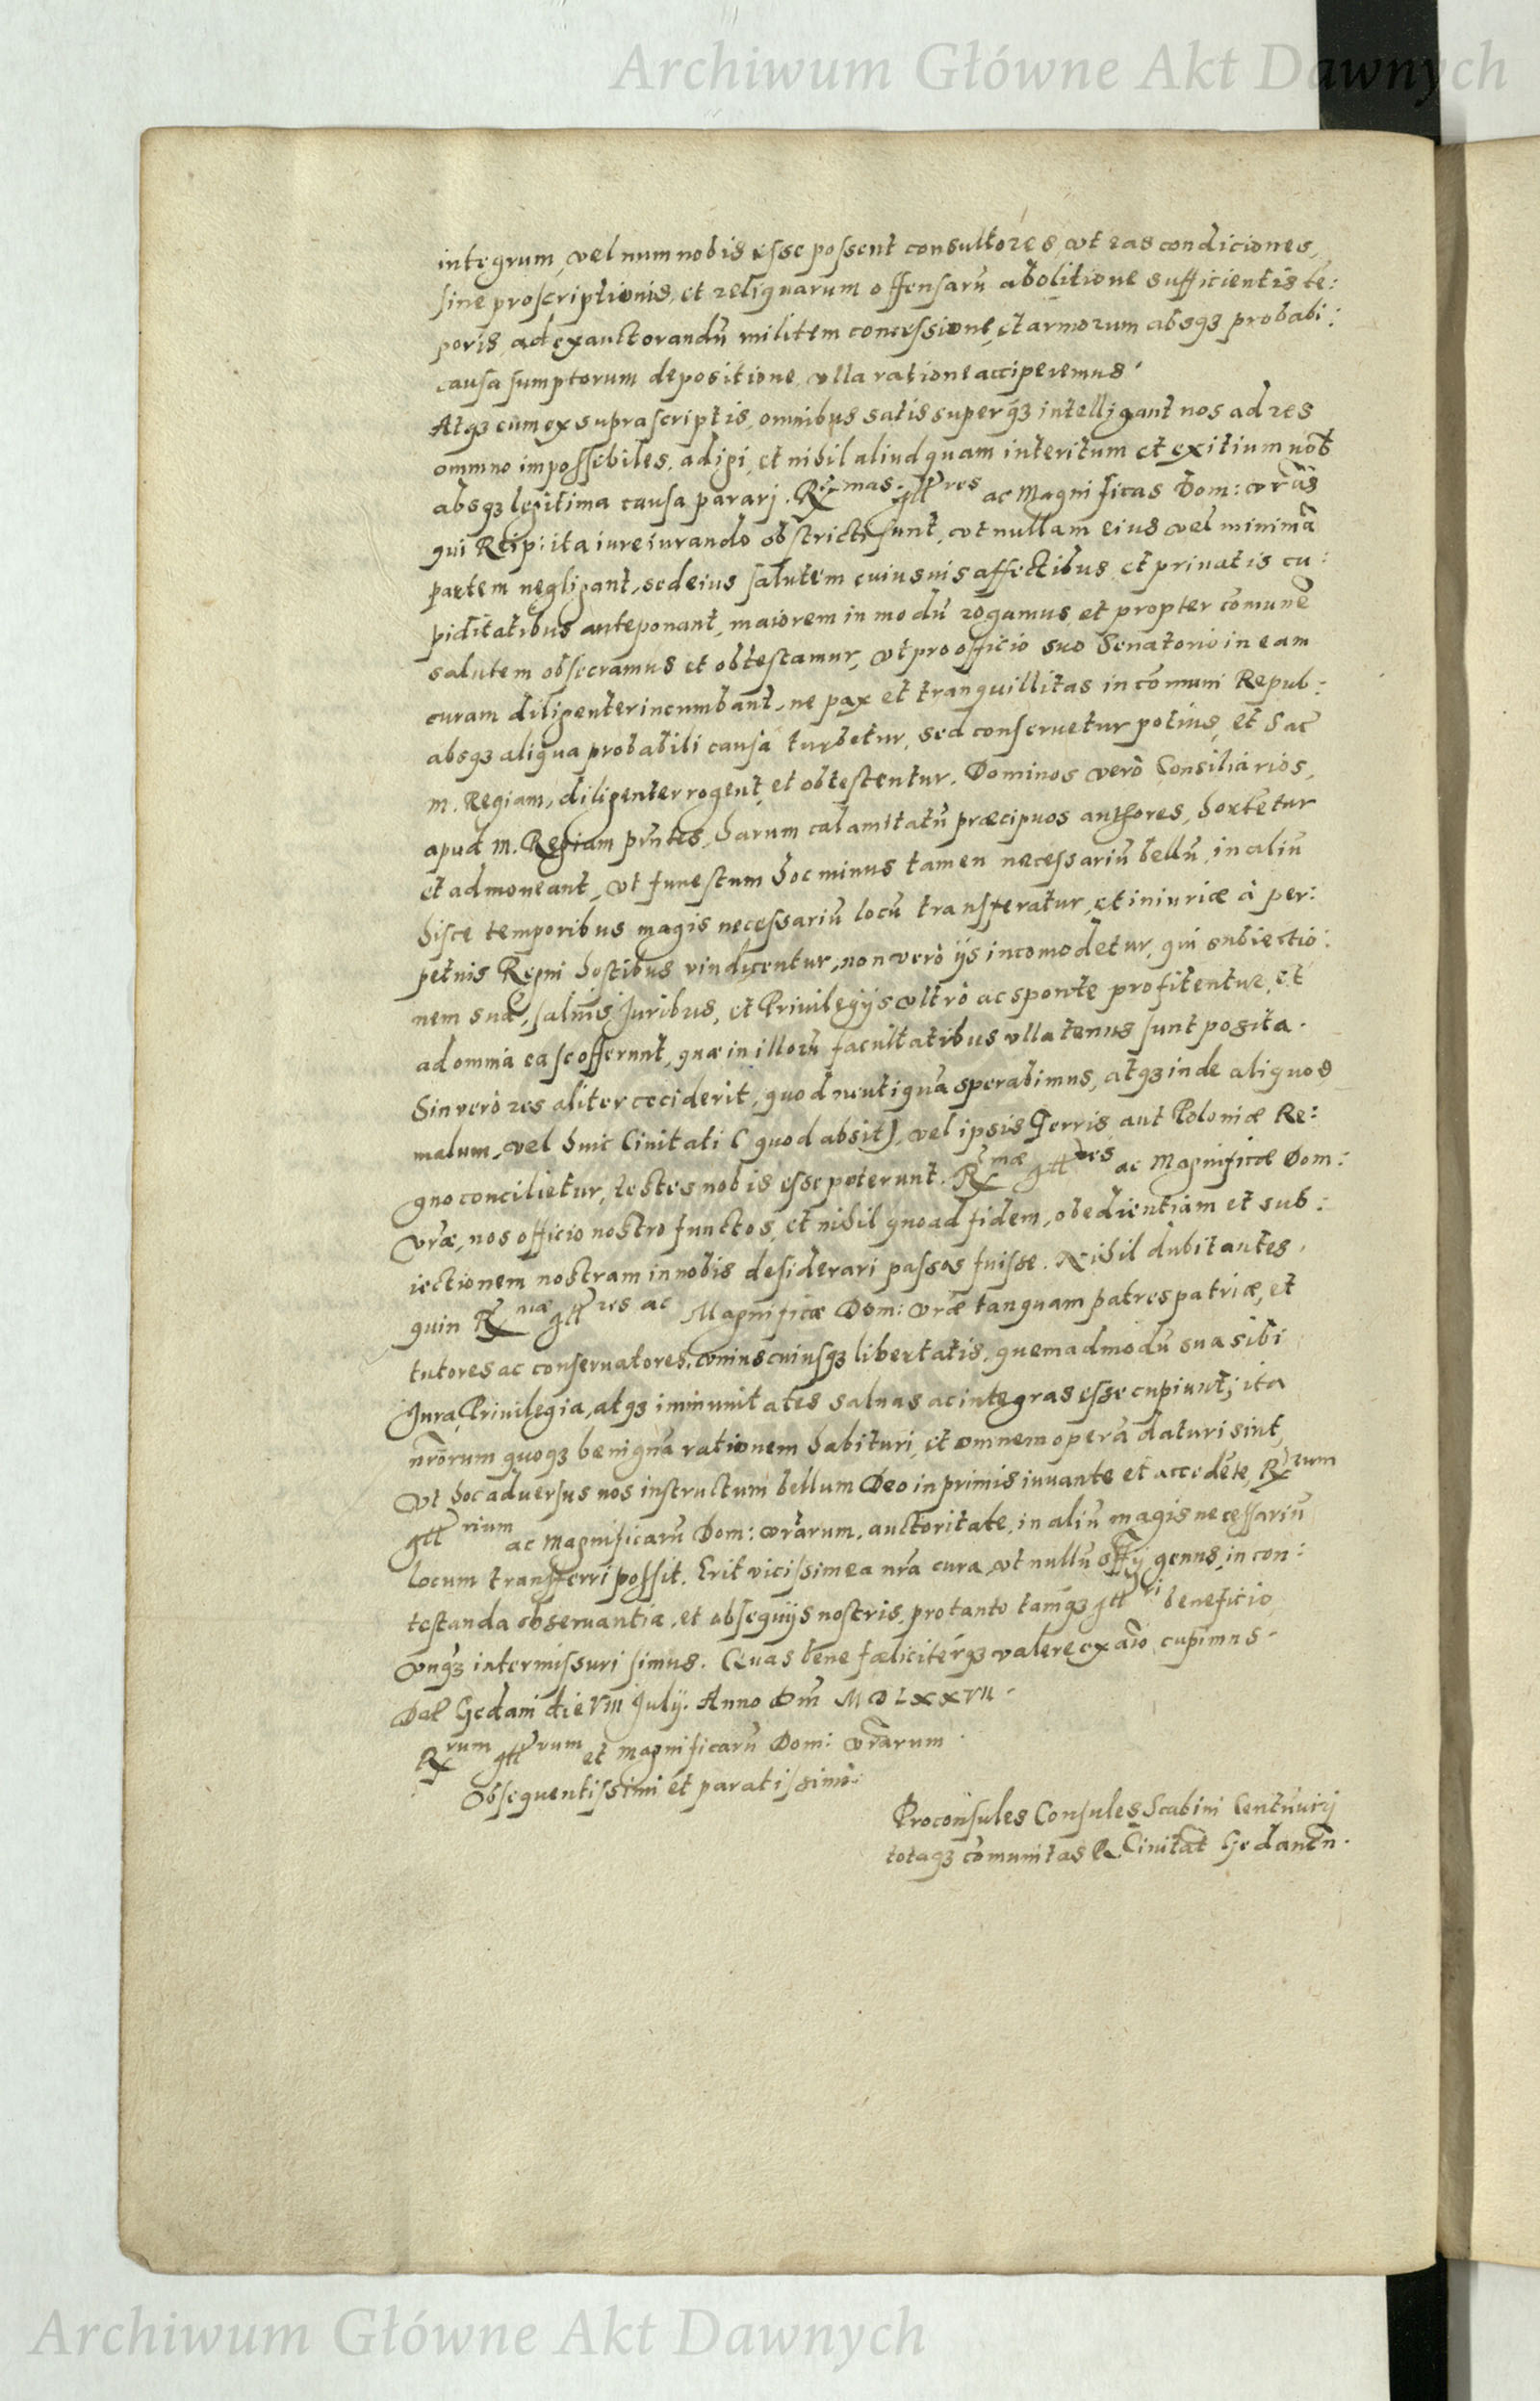 Archiwum Główne Akt Dawnych
integrum, vel num nobis esse possent consultores, vt eas condiciones,
sine proscriptionis, et reliquarum offensarū abolitione sufficientis tē:
poris, ad exauctorandū militem concessione, et armorum absqꝫ probabi:
causa sumptorum depositione, vlla ratione acciperemus.
Atqꝫ cum ex suprascriptis, omnibus satis superqꝫ intelligant nos ad res
omnino impossibiles, adigi, et nihil aliud quam interitum et exitium nob̄
absqꝫ legitima causa parari. Rᵐᵃˢ. Illʳᵉˢ ac Magnificas Dom: vrās
qui Reip: ita iureiurando obstricti sunt, vt nullam eius vel minimā
partem negligant, sed eius salutem cuiusuis affectibus et priuatis cu:
piditatibus anteponant, maiorem in modū rogamus, et propter comunē
salutem obsecramus et obtestamur, vt pro officio suo Senatorio in eam
curam diligenter incumbant, ne pax et tranquillitas in cōmuni Repub:
absqꝫ aliqua probabili causa turbetur, sed conseruetur potius, et Sac̄
M. Regiam, diligenter rogent, et obtestentur. Dominos verò Consiliarios,
apud M. Regiam prn̄tes, harum calamitatū præcipuos authores, hortētur
et admoneant, vt funestum hoc minus tamen necessariū bellū, in aliū
hisce temporibus magis necessariū locū transferatur, et iniuriæ à per:
petuis Regni hostibus vindicentur, non verò ijs incomodetur, qui subiectio:
nem suā, saluis Juribus, et Priuilegijs vltrò ac sponte profitentur, et
ad omnia ea se offerunt, quæ in illorū facultatibus vllatenus sunt posita.
Sin verò res aliter ceciderit, quod neutiquā sperabimus, atqꝫ inde aliquod
malum, vel huic Ciuitati (quod absit), vel ipsis Terris aut Poloniæ Re:
gno concilietur, testes nobis esse poterunt. Rᵐᵃᵉ Illʳᵉˢ ac Magnificæ Dom:
vræ, nos officio nostro functos, et nihil quoad fidem, obedientiam et sub:
iectionem nostram in nobis desiderari passos fuisse. Nihil dubitantes,
quin Rᵐᵃᵉ Illʳᵉˢ ac Magnificæ Dom: vræ tanquam patres patriæ, et
tutores ac conseruatores, vnius cuiusqꝫ libertatis, quemadmodū sua sibi
Jura, Priuilegia, atqꝫ immunitates saluas ac integras esse cupiunt; ita
nrōrum quoqꝫ benignā rationem habituri, et omnem operā daturi sint,
Vt hoc aduersus nos instructum bellum Deo in primis iuuante et accedēte, Rʳᵘᵐ
Illʳⁱᵘᵐ ac Magnificarū Dom: vrārum, auctoritate, in aliū magis necessariū
locum transferri possit. Erit vicissim ea nrā cura, vt nullū offīj genus, in con:
testanda obseruantia, et obsequijs nostris, pro tanto tamqꝫ Illʳⁱ beneficio,
vnqꝫ intermissuri simus. Quas bene fæliciterqꝫ valere ex aīo cupimus.
Dat̄ Gedani die VIII Julij. Anno Dm̄ MDLXXVII.
Rʳᵘᵐ Illʳᵘᵐ et Magnificarū Dom: vrārum.
Obsequentissimi et paratissimi:
Proconsules Consules Scabini Centūuirj
totaqꝫ cōmunitas R. Ciuitat̄ Gedanēn.
Archiwum Główne Akt Dawnych